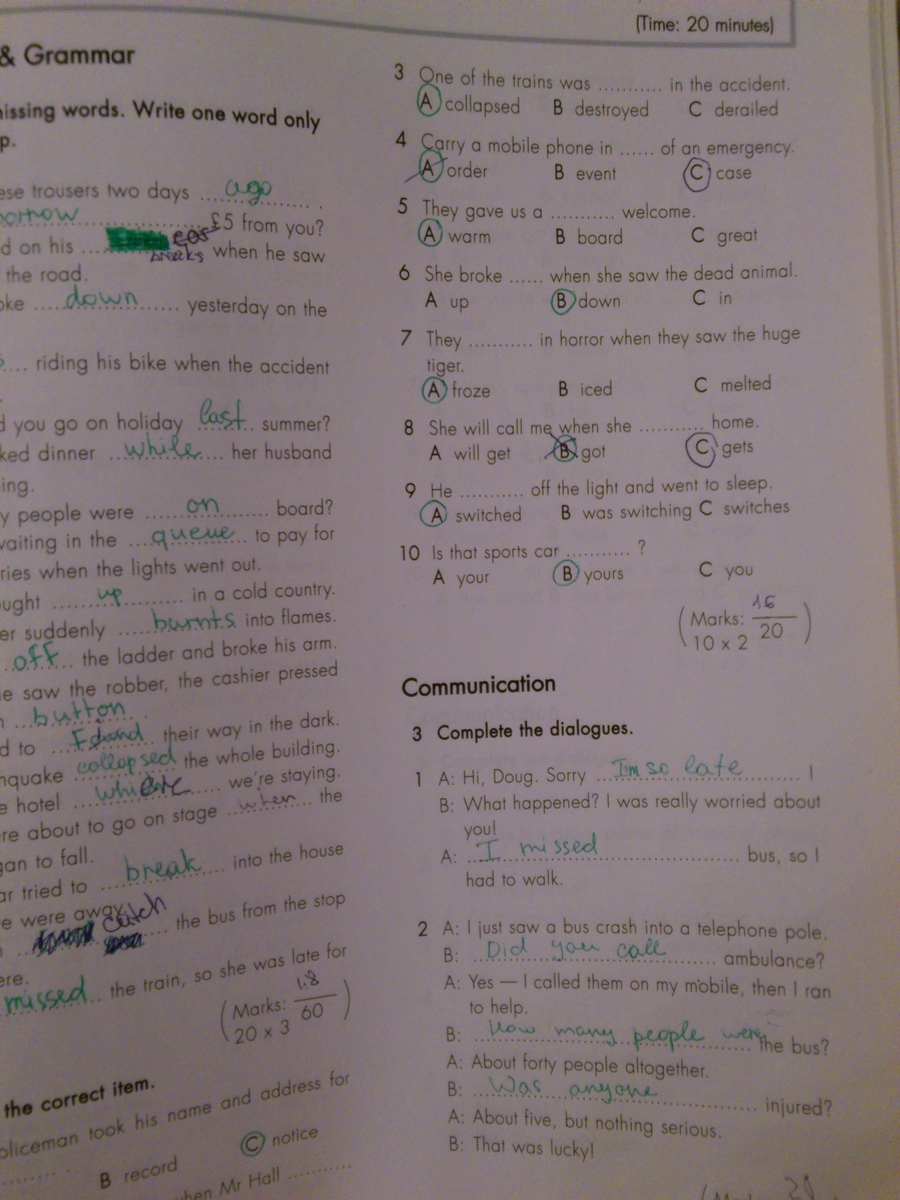 (Time: 20 minutes)
& Grammar
missing words. Write one word only
p.
ese trousers two days ago
morrow £5 from you?
d on his ear breaks when he saw
the road.
oke down yesterday on the
riding his bike when the accident
d you go on holiday last summer?
ked dinner while her husband
ing.
y people were on board?
waiting in the queue to pay for
ries when the lights went out.
ought up in a cold country.
er suddenly burnts into flames.
off the ladder and broke his arm.
e saw the robber, the cashier pressed
button
d to Found their way in the dark.
hquake collopsed the whole building.
e hotel where we're staying.
ere about to go on stage when the
gan to fall.
ar tried to break into the house
e were away.
catch the bus from the stop
ere.
missed the train, so she was late for
(Marks: 18/60)
20 x 3
the correct item.
oliceman took his name and address for
B record C notice
when Mr Hall
3 One of the trains was ........... in the accident.
A collapsed B destroyed C derailed
4 Carry a mobile phone in ...... of an emergency.
A order B event C case
5 They gave us a ........... welcome.
A warm B board C great
6 She broke ...... when she saw the dead animal.
A up B down C in
7 They ........... in horror when they saw the huge
tiger.
A froze B iced C melted
8 She will call me when she ........... home.
A will get B got C gets
9 He ........... off the light and went to sleep.
A switched B was switching C switches
10 Is that sports car ........... ?
A your B yours C you
(Marks: 16/20)
10 x 2
Communication
3 Complete the dialogues.
1 A: Hi, Doug. Sorry I'm so late !
B: What happened? I was really worried about
you!
A: I missed bus, so I
had to walk.
2 A: I just saw a bus crash into a telephone pole.
B: Did you call ambulance?
A: Yes — I called them on my mobile, then I ran
to help.
B: How many people were the bus?
A: About forty people altogether.
B: Was anyone injured?
A: About five, but nothing serious.
B: That was lucky!